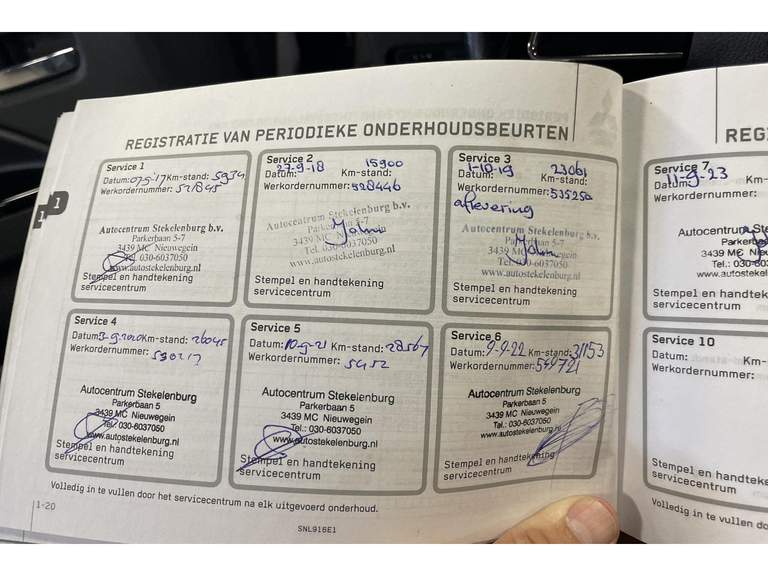 REGISTRATIE VAN PERIODIEKE ONDERHOUDSBEURTEN
Service 1
Datum: Km-stand: 5934
Werkordernummer: 521845
Autocentrum Stekelenburg b.v.
Parkerbaan 5-7
3439 MC Nieuwegein
Tel. 030-6037050
www.autostekelenburg.nl
Stempel en handtekening
servicecentrum
Service 2
27-9-18 15900
Datum: Km-stand:
Werkordernummer: 528446
Autocentrum Stekelenburg b.v.
Parkerbaan 5-7
3439 MC Nieuwegein
Tel. 030-6037050
www.autostekelenburg.nl
Stempel en handtekening
servicecentrum
Service 3
1-10-19 23061
Datum: Km-stand:
Werkordernummer: 535250
aflevering
Autocentrum Stekelenburg b.v.
Parkerbaan 5-7
3439 MC Nieuwegein
Tel. 030-6037050
www.autostekelenburg.nl
Stempel en handtekening
servicecentrum
Service 4
Datum: 3-9-2020 Km-stand: 26045
Werkordernummer:
Autocentrum Stekelenburg
Parkerbaan 5
3439 MC Nieuwegein
Tel.: 030-6037050
www.autostekelenburg.nl
Stempel en handtekening
servicecentrum
Service 5
Datum: 10-9-21 Km-stand: 28567
Werkordernummer:
Autocentrum Stekelenburg
Parkerbaan 5
3439 MC Nieuwegein
Tel.: 030-6037050
www.autostekelenburg.nl
Stempel en handtekening
servicecentrum
Service 6
Datum: 9-9-22 Km-stand: 31153
Werkordernummer: 549721
Autocentrum Stekelenburg
Parkerbaan 5
3439 MC Nieuwegein
Tel.: 030-6037050
www.autostekelenburg.nl
Stempel en handtekening
servicecentrum
Volledig in te vullen door het servicecentrum na elk uitgevoerd onderhoud.
1-20
SNL916E1
1
1
REG
Service 7
11-9-23
Datum: Km-
Werkordernummer:
Autocentrum
Parkerba
3439 MC Nie
Tel.: 030-60
www.autosteke
Stempel en handtek
servicecentrum
Service 10
Datum: Km-
Werkordernummer:
Stempel en handte
servicecentrum
Volledig in te vullen do